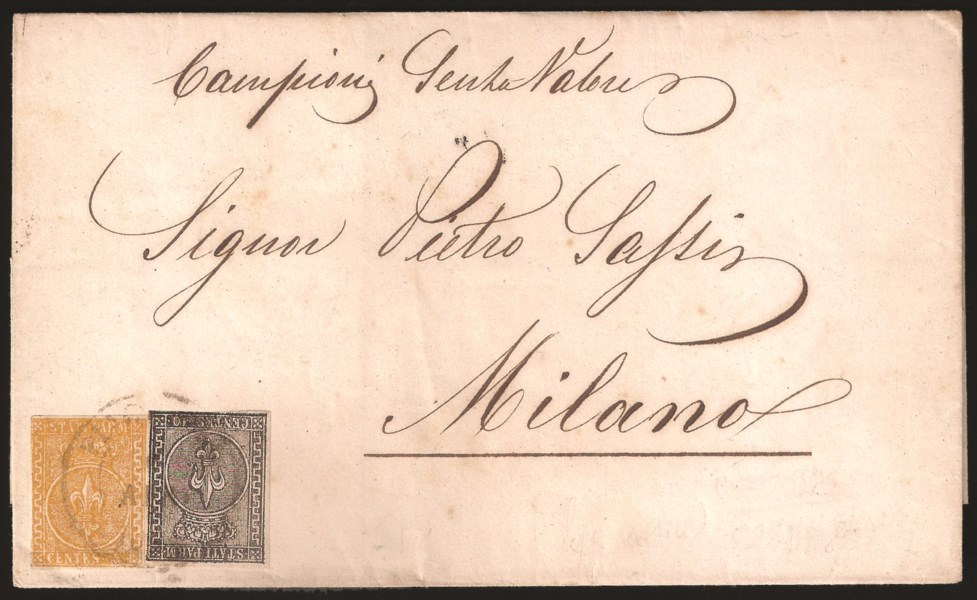 Campioni Senza Valore
Signor Pietro Sassi
Milano
STATI PARM
CENTES
CENTES 10
STATI PARM